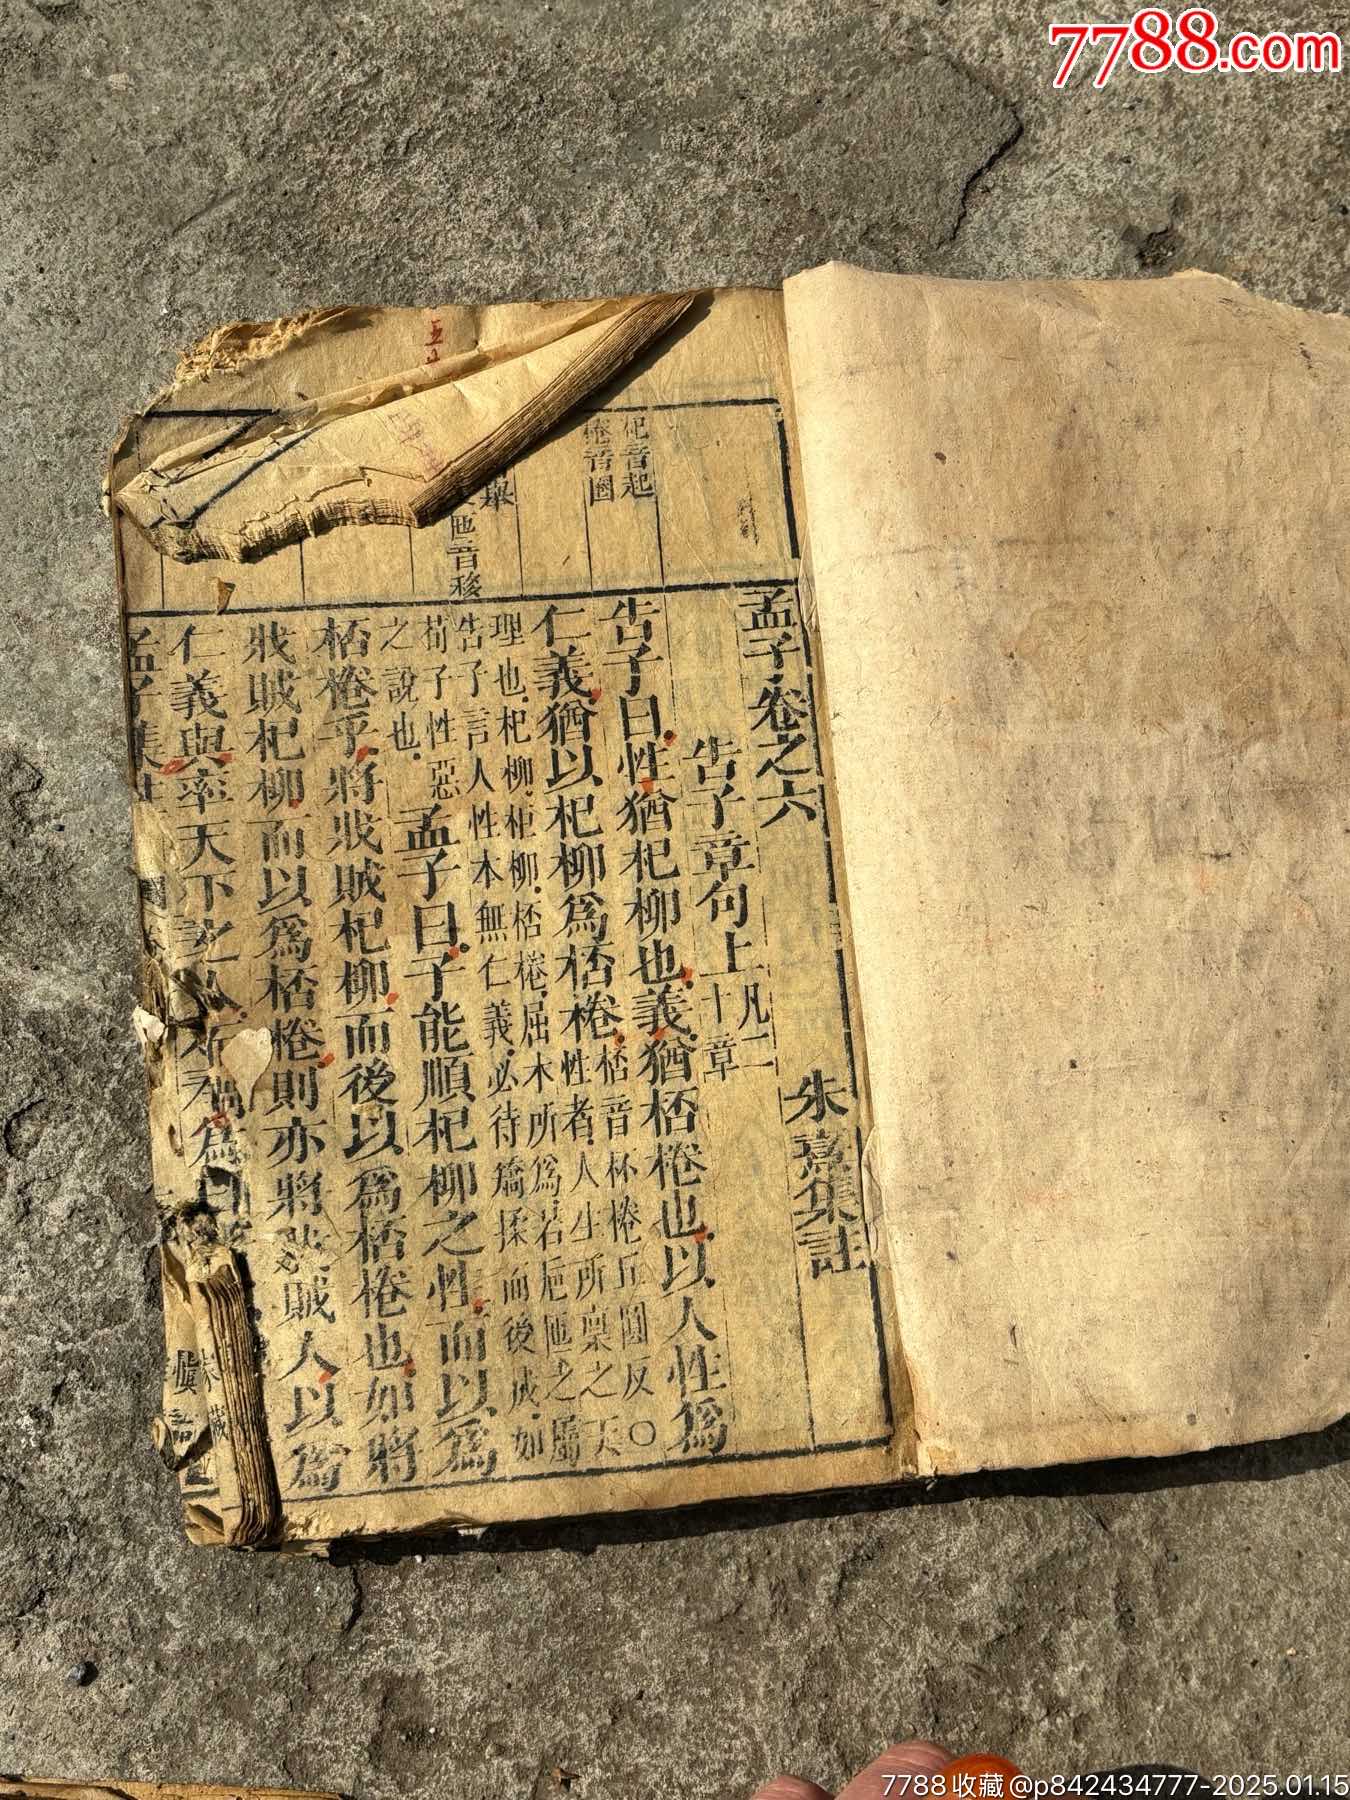 7788.com
孟子卷之六
朱熹集註
告子章句上 凡二十章
告子曰性猶杞柳也義猶桮棬也以人性爲
仁義猶以杞柳爲桮棬 桮音杯棬丘圓反○性者人生所稟之天
理也杞柳柜柳桮棬屈木所爲若巵匜之屬
告子言人性本無仁義必待矯揉而後成如
荀子性惡之說也 孟子曰子能順杞柳之性而以爲
桮棬乎將戕賊杞柳而後以爲桮棬也如將
戕賊杞柳而以爲桮棬則亦將戕賊人以爲
仁義與率天下之人而禍
孟子集註
杞音起
棬音圈
匜音移
五
7788收藏@p842434777-2025.01.15